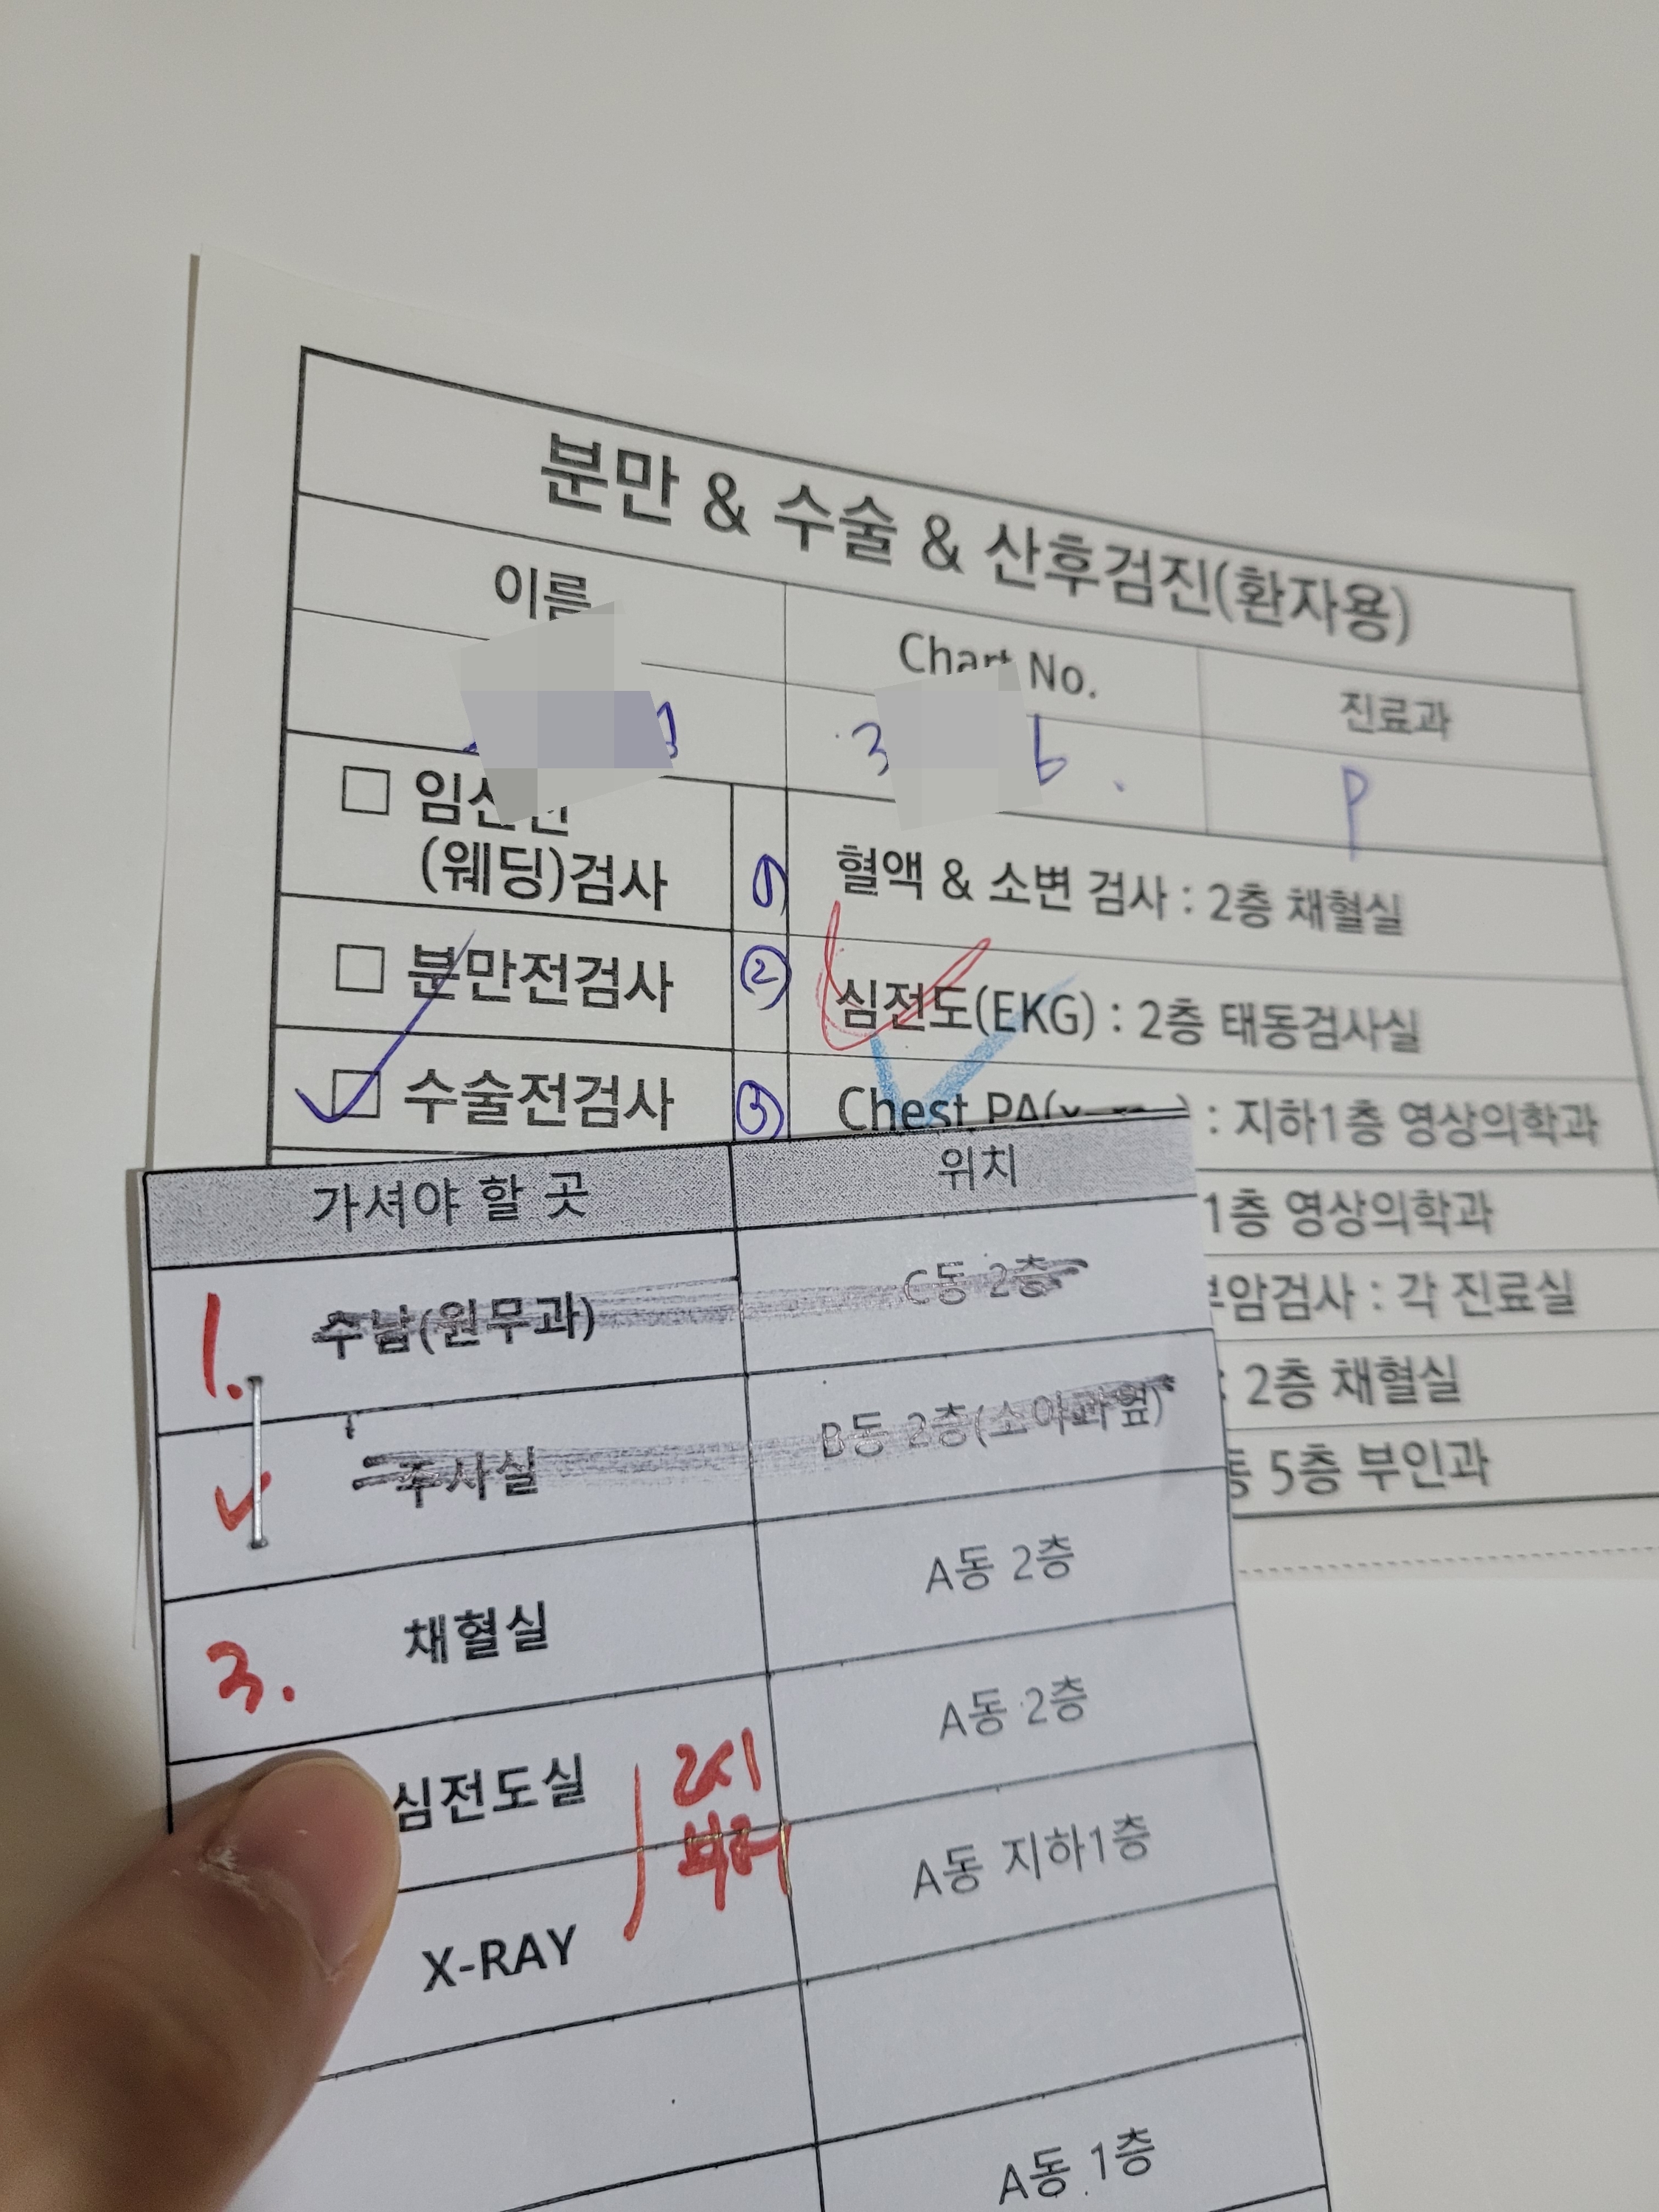 분만 & 수술 & 산후검진(환자용)
이름
Chart No.
진료과
3
6.
P
□ 임신전
(웨딩)검사
① 혈액 & 소변 검사 : 2층 채혈실
□ 분만전검사
② 심전도(EKG) : 2층 태동검사실
□ 수술전검사
③ Chest PA( : 지하1층 영상의학과
1층 영상의학과
암검사 : 각 진료실
: 2층 채혈실
5층 부인과
가셔야 할 곳 위치
1. 수납(원무과) C동 2층
주사실 B동 2층(소아과옆)
3. 채혈실 A동 2층
심전도실 A동 2층
2시
부터
X-RAY A동 지하1층
A동 1층